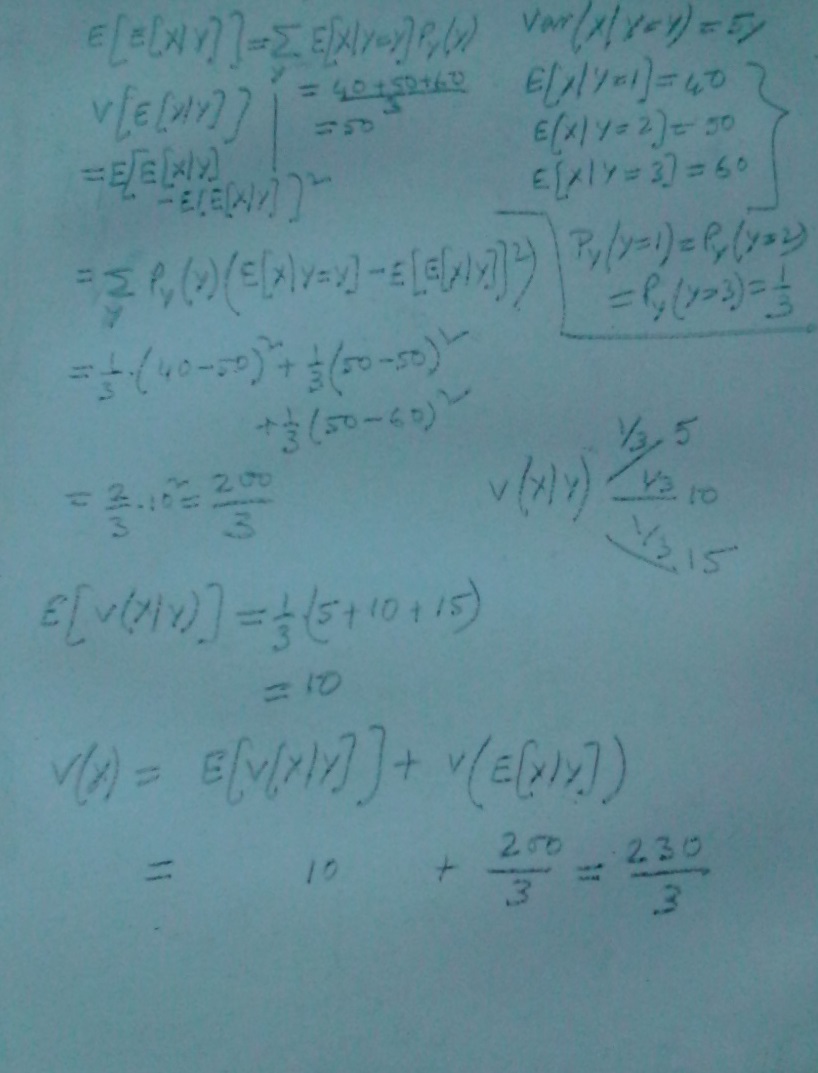 E[E[X|Y]] = Σ_y E[X|Y=y] P_Y(y)
= (40+50+60)/3
= 50
Var(X|Y=y) = 5y
E[X|Y=1] = 40
E(X|Y=2) = 50
E[X|Y=3] = 60
P_Y(Y=1) = P_Y(Y=2)
= P_Y(Y=3) = 1/3
V[E[X|Y]]
= E[E[X|Y]
- E(E[X|Y]]²
= Σ_y P_Y(y)(E[X|Y=y] - E[E[X|Y]]²)
= 1/3 · (40-50)² + 1/3 (50-50)²
+ 1/3 (50-60)²
= 2/3 · 10² = 200/3
V(X|Y) 1/3 5
1/3 10
1/3 15
E[V(X|Y)] = 1/3 (5+10+15)
= 10
V(X) = E[V(X|Y]] + V(E[X|Y])
= 10 + 200/3 = 230/3